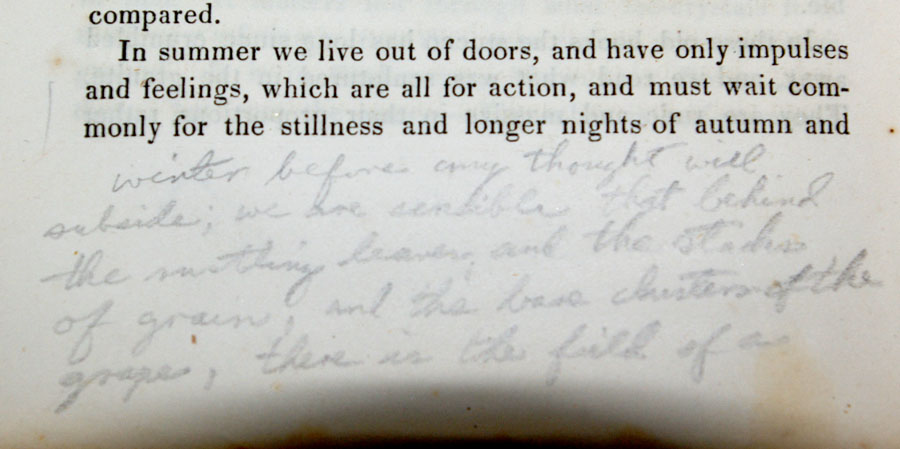 compared.
In summer we live out of doors, and have only impulses
and feelings, which are all for action, and must wait com-
monly for the stillness and longer nights of autumn and
winter before any thought will
subside; we are sensible that behind
the rustling leaves, and the stacks
of grain, and the bare clusters of the
grape, there is the field of a